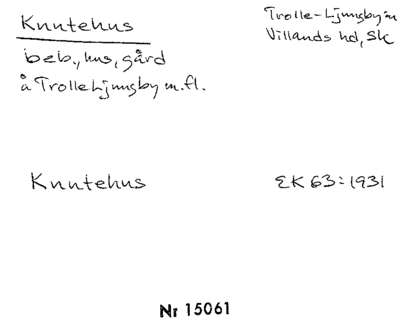 Knutehus
Trolle-Ljungby sn
Villands hd, Sk
beb., hus, gård
å Trolle Ljungby m.fl.
Knutehus
EK 63:1931
Nr 15061